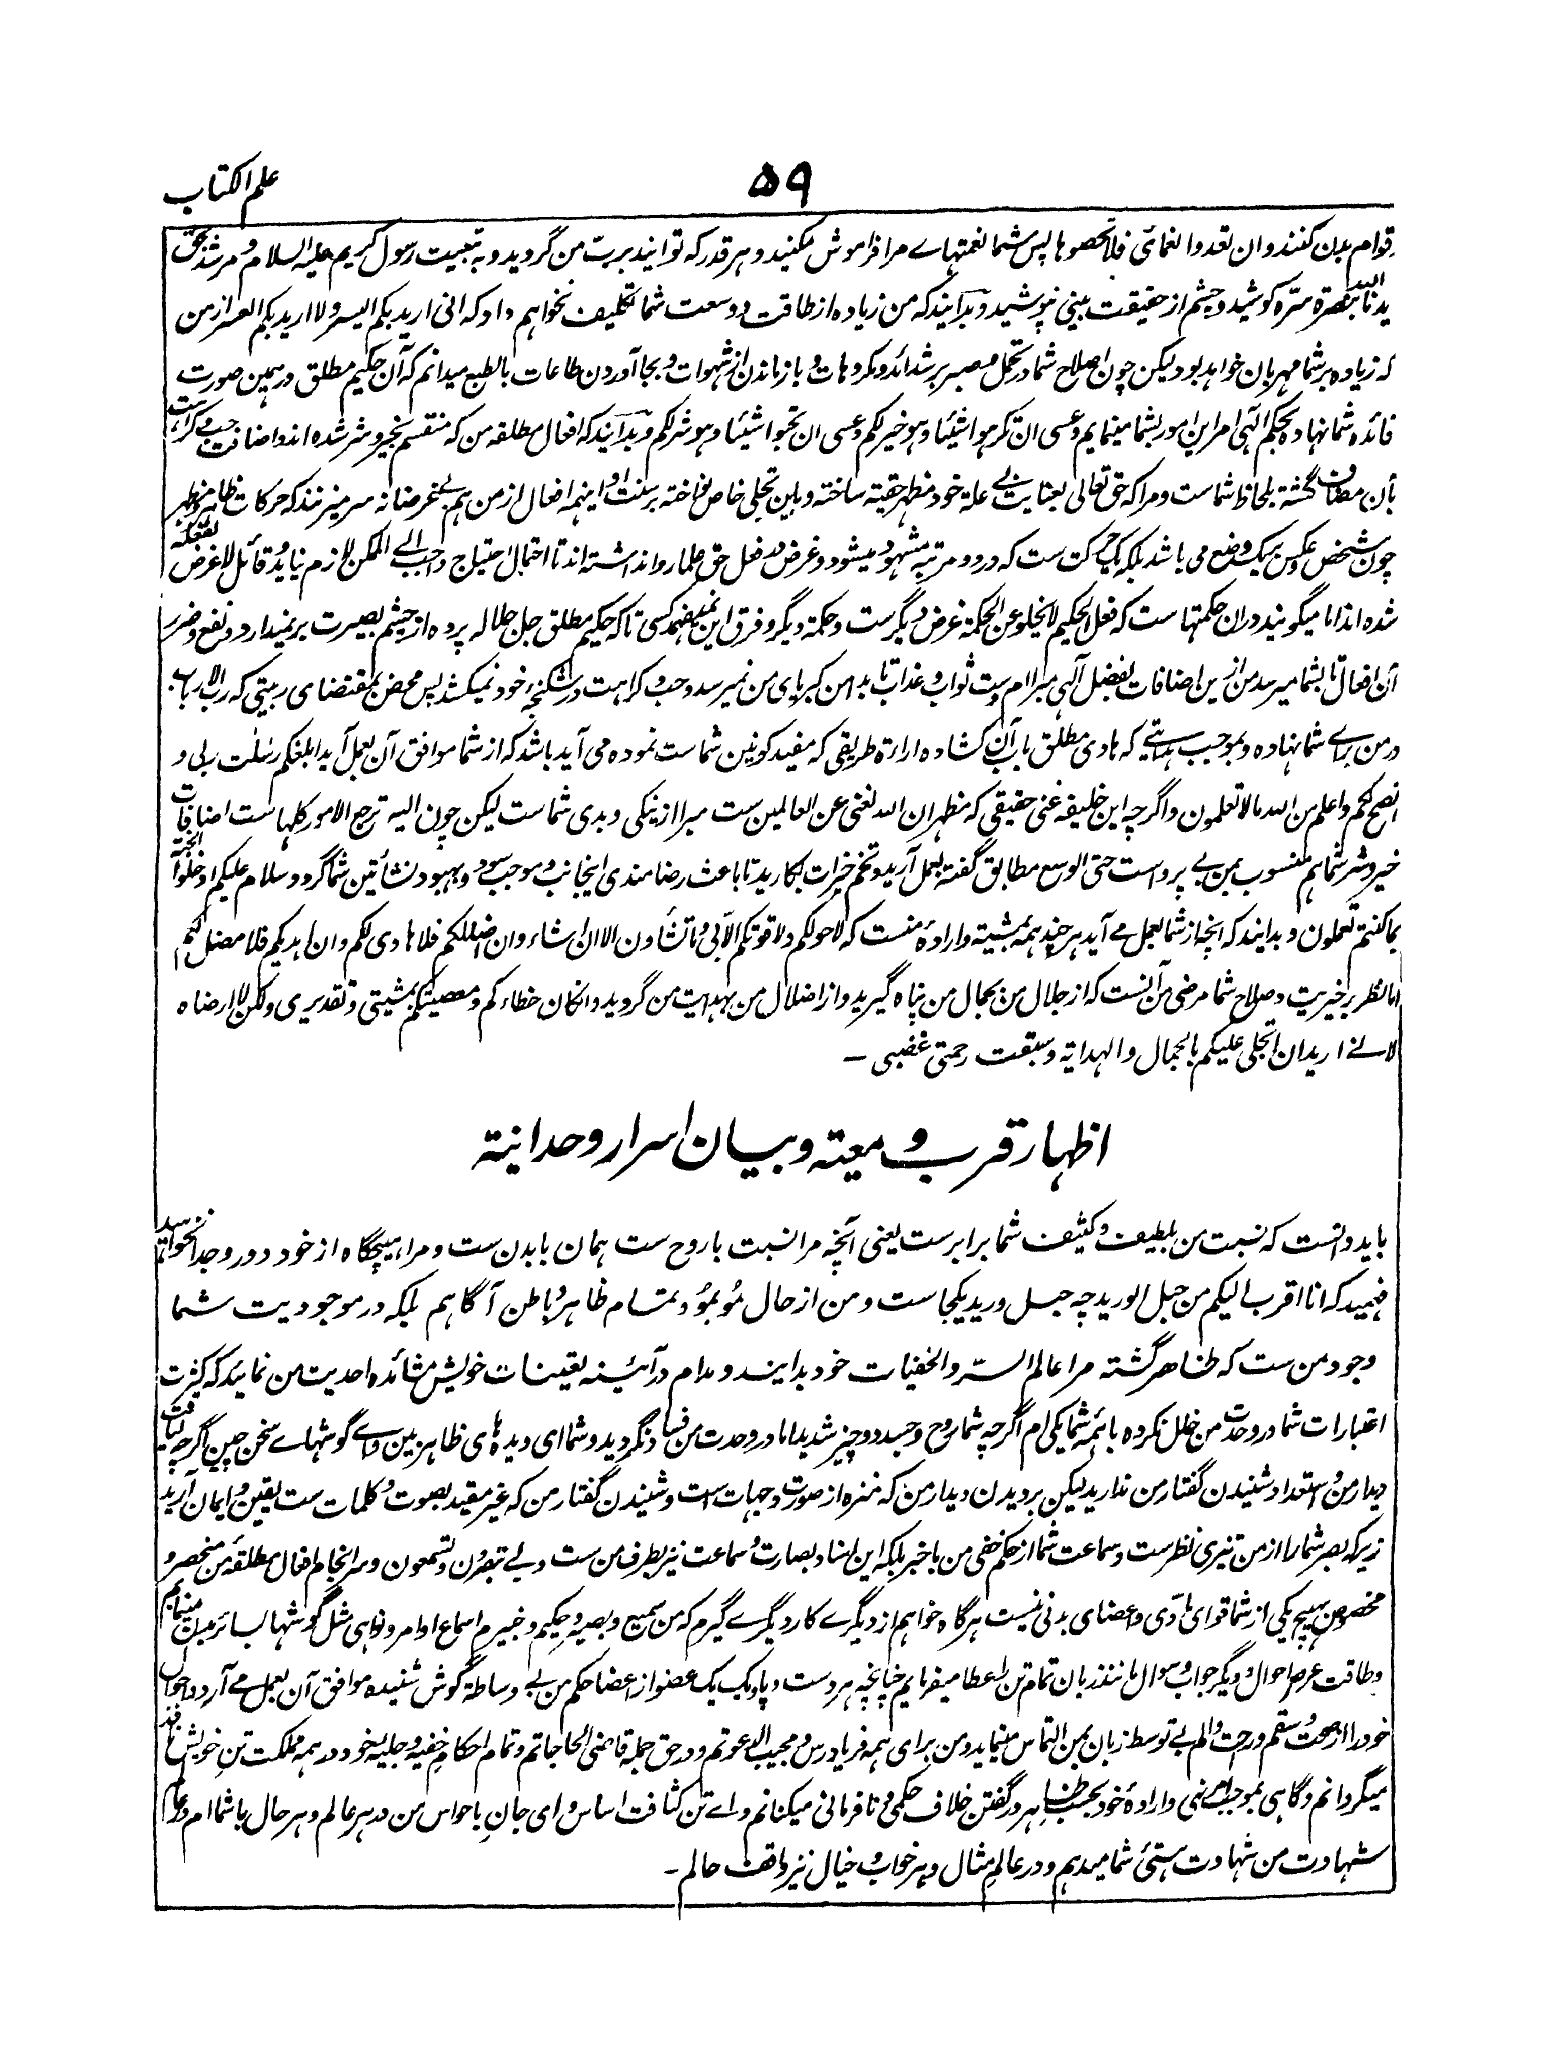 علم الکتاب
۵۹
قوام بدن کنند و ان تعدوا نعمائی فلا تحصوها پس شما نعمتهاے مرا فراموش مکنید و هر قدر که توانید بر بت من گردید و به تبعیت رسول کریم علیه السلام و مرشد بحق
کوشید و چشم از حقیقت بینی نپوشید و بدانید که من زیاده از طاقت و وسعت شما تکلیف نخواهم داد که انی ارید بکم الیسر و لا ارید بکم العسر از من
که زیاده بر شما مهربان خواهد بود لیکن چون اصلاح شما در تحمل و صبر بر شدائد و مکروهات و باز ماندن از شهوات و بجا آوردن طاعات بالطبع میدانم که آن حکیم مطلق در همین صورت
فائده شما نهاده بحکم آلهی امر این امور بشما مینمایم و عسی ان تکرهوا شیئا و هو خیر لکم و عسی ان تحبوا شیئا و هو شر لکم و بدانید که افعال مطلقه من که منقسم بخیر و شر شده اند و اضافت حب و کراهت
بآن مضاف گشته بلحاظ شماست و مرا که حق تعالی بعنایت بے علة خود مظهر حقیقه ساخته و باین تجلی خاص نواخته بر سنت او اینهمه افعال از من هم بے غرضانه سر میزند که حرکات ظاهر و مظهر
چون شخص و عکس بیک وضع می باشد بلکه یک حرکت ست که در دو مرتبه مشهود میشود و غرض در فعل حق علما روا نداشته اند تا احتمال احتیاج واجب الے الممکن لازم نیاید و قائل لا غرض لفعله
شده اند اما میگویند دران حکمتهاست که فعل الحکیم لا یخلو عن الحکمة غرض دیگرست و حکمة دیگر و فرق این نمیفهمد کسی تا که حکیم مطلق جل جلاله پرده از چشم بصیرت بر نمیدارد و نفع و ضرر
آن افعال تا بشما میرسد من ازین اضافات بفضل آلهی مبرا ام و ست ثواب و عذاب تا بدامن کبریای من نمیرسد و حب و کراهت در شکنجهٔ خود نمیکشد پس محض بمقتضای ربیتی که رب الارباب
در من براے شما نهاده و بموجب هدایتے که هادی مطلق باب آن کشاده ارادهٔ طریقی که مفید کونین شماست نموده می آید باشد که از شما موافق آن بعمل آید ابلغکم رسلت ربی و
انصح لکم و اعلم من الله ما لا تعلمون و اگرچه این خلیفه غنی حقیقی که مظهر ان الله لغنی عن العالمین ست مبرا از نیکی و بدی شماست لیکن چون الیه ترجع الامور کلها ست اضافات
خیر و شر شما هم منسوب بمن بے پرواست حتی الوسع مطابق گفته بعمل آرید و تخم خیرات بکارید تا باعث رضامندی اینجانب و موجب سود و بهبود نشأتین شما گردد و سلام علیکم ادخلوا الجنة
بما کنتم تعملون و بدانید که آنچه از شما بعمل مے آید هر چند همه بمشیة و ارادهٔ منست که لا حولکم و لا قوتکم الا بی و ما تشاؤن الا ان اشاء و ان اضللکم فلا هادی لکم و ان اهدیکم فلا مضل لکم
اما نظر بر خیریت و صلاح شما مرضی من آنست که از جلال من بجمال من پناه گیرید و از اضلال من بهدایت من گردید و ان کان خطاءکم و معصیتکم بمشیتی و تقدیری و لکن لا ارضاه
لانے ارید ان اتجلی علیکم بالجمال و الهدایة و سبقت رحمتی غضبی ـ
اظهار قرب و معیته و بیان اسرار وحدانیة
باید دانست که نسبت من بلطیف و کثیف شما برابرست یعنی آنچه مرا نسبت با روح ست همان با بدن ست و مرا هیچگاه از خود دور و جدا نخواهید
فهمید که انا اقرب الیکم من حبل الورید چه حبل ورید یکجاست و من از حال مو بمو و تمام ظاهر و باطن آگاهم بلکه در موجودیت شما
وجود من ست که ظاهر گشته مرا عالم السر و الخفیات خود بدانید و مدام در آئینه تعینات خویش مشاهده احدیت من نمائید که کثرت
اعتبارات شما در وحدت من خلل نکرده با همه شما یکی ام اگرچه شما روح و جسد دو چیز شدید اما در وحدت من فساد نگردید و شما ای دیده های ظاهر بین و اے گوشهاے سخن چین اگرچه لیاقت
دیدار من و استعداد شنیدن گفتار من ندارید لیکن بر دیدن دیدار من که منزه از صورت و جهات است و شنیدن گفتار من که غیر مقید بصوت و کلمات ست یقین و ایمان آرید
زیرا که بصر شما را از من تیزی نظرست و سماعت شما از حکم خفی من با خبر بلکه این اسناد بصارت و سماعت نیز بطرف من ست و بے تبصرون و تسمعون و سرانجام افعال مطلقهٔ من منحصر و
مخصوص بهیچ یکی از شما قوای مادی و اعضای بدنی نیست هرگاه خواهم از دیگرے کار دیگرے گیرم که من سمیع و بصیر و حکیم و خبیرم اسماع اوامر و نواهی مثل گوشها بسائر بدن مینمایم
و طاقت عرض احوال و دیگر جواب و سوال مانند زبان تمام تن را عطا میفرمایم چنانچه هر دست و پا و یک یک عضو از اعضا حکم من بے وساطهٔ گوش شنیده موافق آن بعمل مے آرد و احوال
خود را از صحت و سقم و راحت و الم بے توسط زبان بمن التماس مینماید و من برای همه فریادرس و مجیب الدعوتم و در حق جمله قاضی الحاجاتم و تمام احکام خفیه و جلیه خود در همه مملکت تن خویش نافذ
میگردانم و گاهی بموجب امر نهی و ارادهٔ خود بحسب ظاهر در گفتن خلاف حکمی و نافرمانی میکنانم و اے تن کثافت اساس و ای جان با حواس من در هر عالم و هر حال با شما ام در عالم
شهادت من شهادت هستی شما میدهم و در عالم مثال و هر خواب و خیال نیز واقف حالم ـ